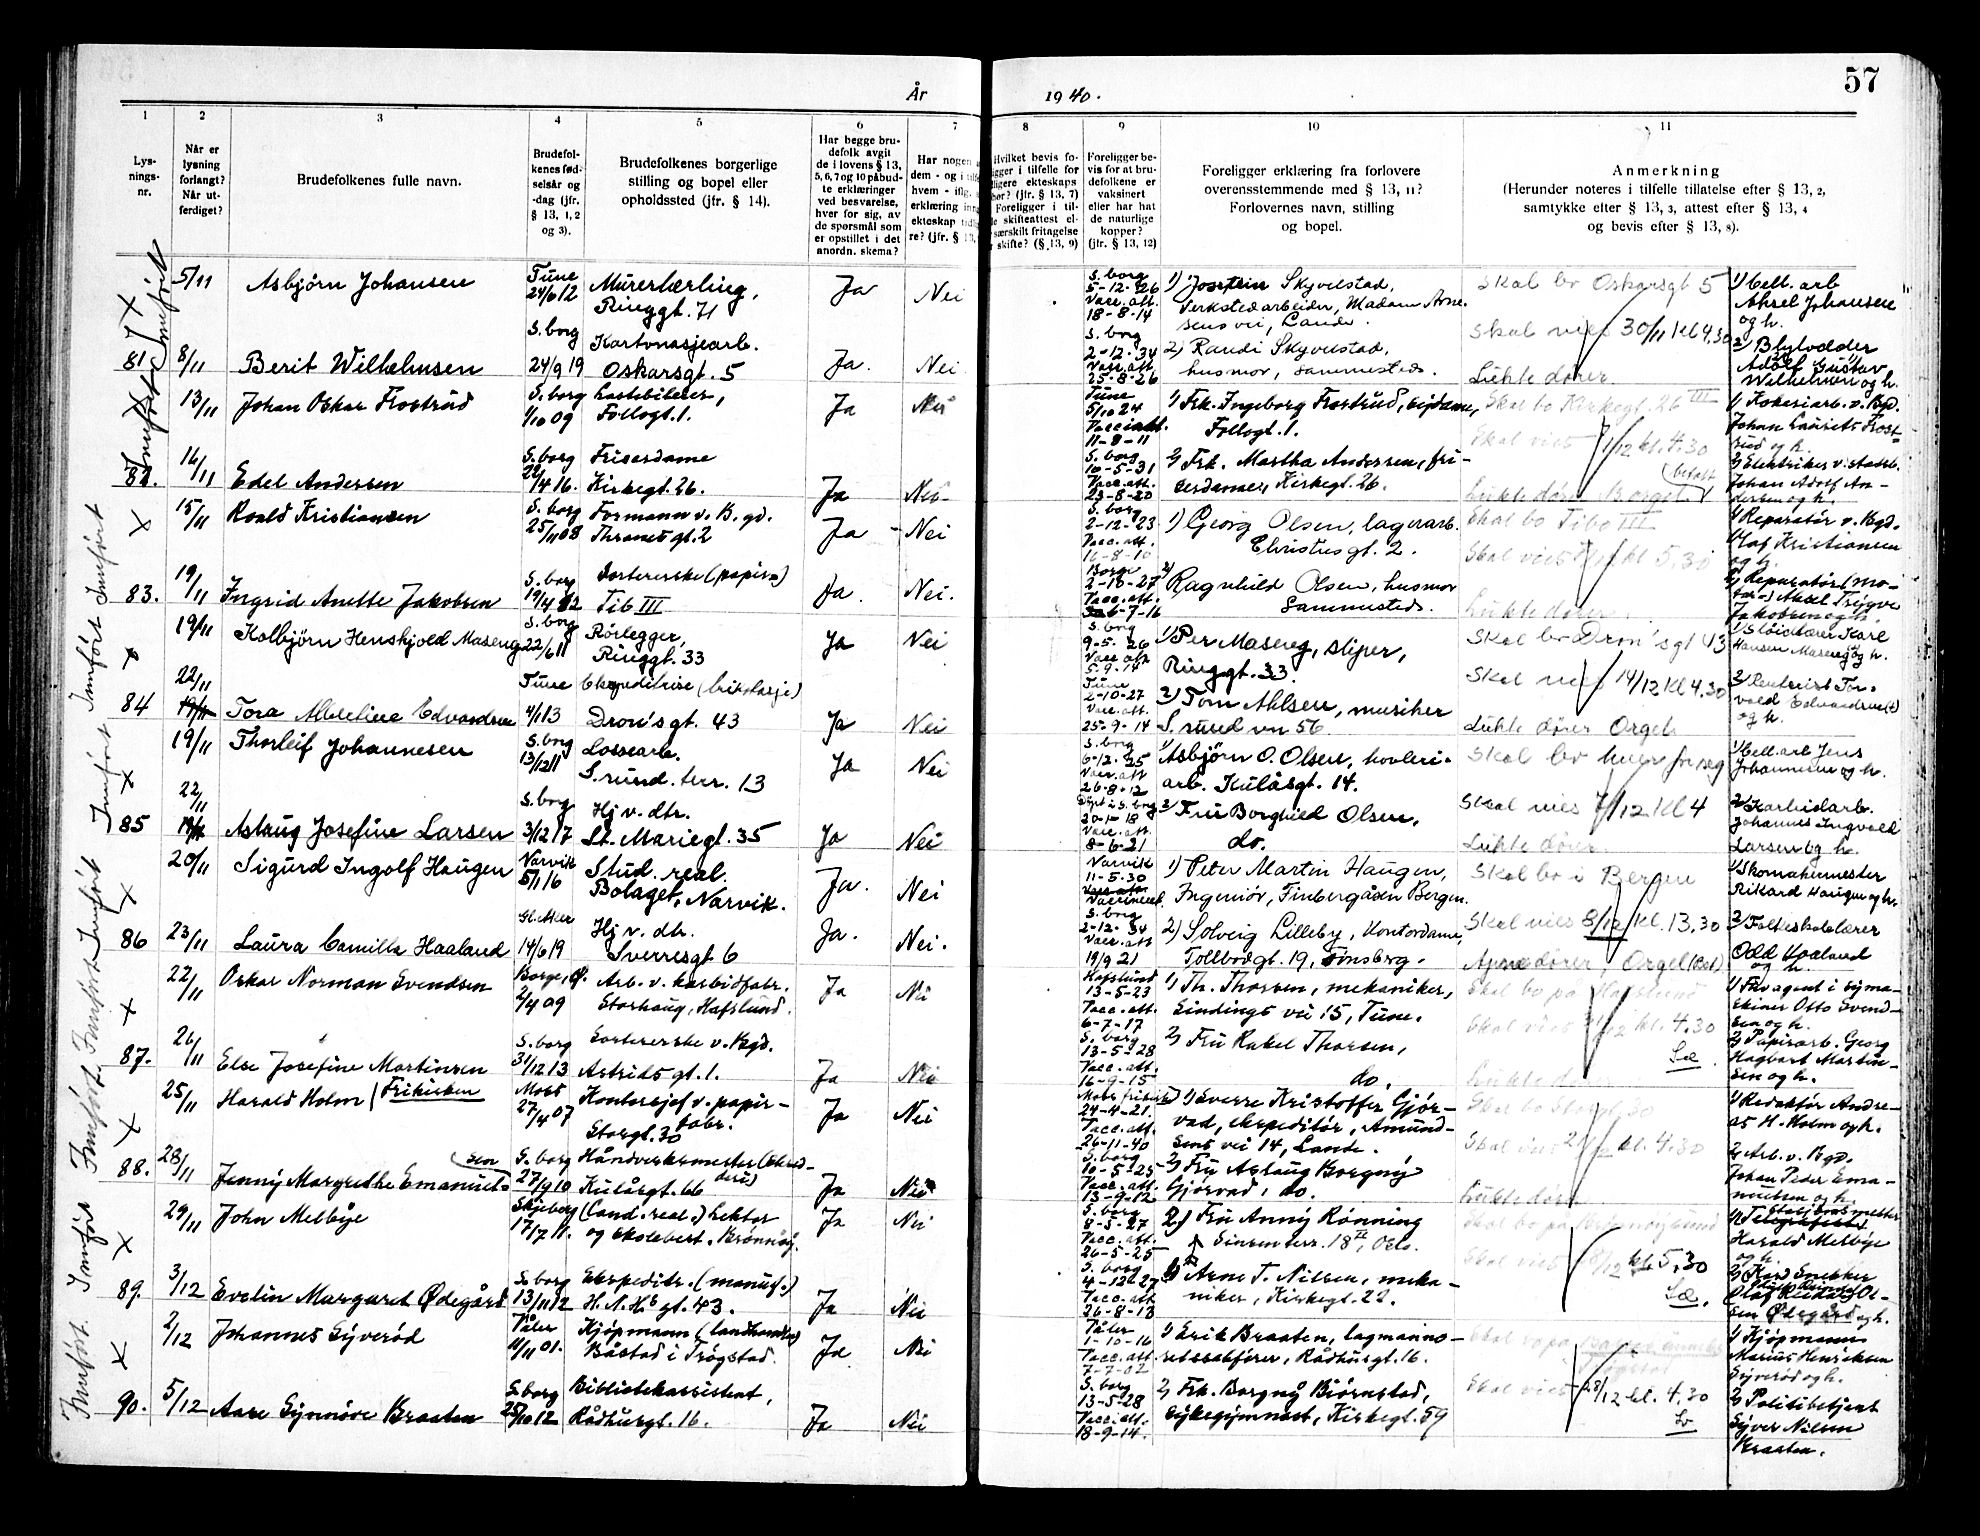 57
År 1940.
1 2 3 4 5 6 7 8 9 10 11
Lys-
nings-
nr.
Når er
lysning
forlangt?
Når ut-
ferdiget?
Brudefolkenes fulle navn.
Brudefol-
kenes fød-
selsår og
-dag (jfr.
§ 13, 1, 2
og 3).
Brudefolkenes borgerlige
stilling og bopel eller
opholdssted (jfr. § 14).
Har begge bru-
defolk avgit
de i lovens § 13,
5, 6, 7 og 10 påbud-
te erklæringer
ved besvarelse,
hver for sig, av
de spørsmål som
er opstillet i det
anordn. skema?
Har nogen
dem - og i
hvem - iflg.
erklæring
ekteskap
re? (jfr. § 13,
Hvilket bevis fo-
ligger i tilfelle for
ekteskaps
(jfr. § 13, 7)
Foreligger i til-
skifteattest el-
særskilt fritagelse
skifte? (§ 13, 9)
Foreligger be-
vis for at bru-
defolkene er
vaksinert
eller har hat
de naturlige
kopper?
(jfr. § 13, 12)
Foreligger erklæring fra forlovere
overensstemmende med § 13, 11?
Forlovernes navn, stilling
og bopel.
Anmerkning
(Herunder noteres i tilfelle tillatelse efter § 13, 2,
samtykke efter § 13, 3, attest efter § 13, 4
og bevis efter § 13, 8).
5/11 Asbjørn Johansen Tune 24/6 12 Murerlærling, Ringgt. 71 Ja Nei
S.borg 5-12-26 Vacc.att. 18-8-14
1) Jostein Skyvulstad,
Verkstedarbeider, Madam Arne-
sens vei, Lande.
Skal bo Oskarsgt 5
1) Cell. arb
Aksel Johansen
og h.
81 8/11 Berit Wilhelmsen S.borg 24/9 19 Kartonasjearb. Oskarsgt. 5 Ja. Nei
S.borg 2-12-34 Vacc.att 25-8-26
2) Randi Skyvulstad,
husmor, sammesteds.
Skal vies 30/11 kl 4.30
Lukte dører.
2) Blylodder
Adolf Gustav
Wilhelmsen og h.
13/11 Johan Oskar Frostrud S.borg 1/10 09 Lastebileier, Follogt. 1. Ja Nei
Tune 5/10 24 11-8-11
1) Frk. Ingeborg Frostrud, sydame,
Follogt. 1.
Skal bo Kirkegt. 26 III
1) Kokeriarb. v. Bgd.
Johan Laurits Frost-
rud og h.
82. 16/11 Edel Andersen S.borg 22/4 16. Friserdame Kirkegt. 26. Ja Nei
S.borg 10-5-31 Vacc.att. 23-8-20
2) Frk. Martha Andersen, fri-
serdame, Kirkegt. 26.
Skal vies 1/12 kl. 4.30
Lukte dører
2) Elektriker v.
Johan Adolf An-
dersen og h.
15/11 Roald Kristiansen S.borg 25/11 08 Formann v. B.gd. Thranesgt. 2 Ja Nei
S.borg 2-12-23 Vacc.att. 16-8-10
1) Georg Olsen, lagerarb.
Christiesgt. 2.
Skal bo Tibo III
1) Reparatør v. Bgd.
Olaf Kristiansen
og h.
83. 19/11 Ingrid Anette Jakobsen S.borg 19/4 12 Sortererske (papir) Tibo III Ja. Nei.
Borge 2-10-27 Vacc.att. 6-7-16
2) Ragnhild Olsen, husmor
Sammesteds.
Skal vies kl 5.30
Lukte dører
2) Reparatør
Aksel Trygve
Jakobsen og h.
19/11 Kolbjørn Henskjold Maseng S.borg 22/6 11 Rørlegger, Ringgt. 33 Ja Nei
S.borg 9-5-26 Vacc.att 5-9-14
1) Per Maseng, sliper,
Ringgt. 33.
Skal bo Dron's gt 43
1) Sløidlærer Karl
Hansen Maseng og h.
84 22/11 Tora Albertine Edvardsen Tune 4/1 13 Ekspeditrise Dron's gt. 43 Ja Nei
Tune 2-10-27 Vacc.att. 25-9-14
2) Tom Ahlsen, musiker
S.rund vn 56.
Skal vies 14/12 kl 4.30
Lukte dører Orgel
2) Rentnist Tor-
vald Edvardsen
og h.
19/11 Thorleif Johannesen S.borg 13/12 11 Lossearb. S.rund. terr. 13 Ja Nei
S.borg 6-12-25 Vacc.att 26-8-12
1) Asbjørn O. Olsen, høvleri-
arb. Kulåsgt. 14.
Skal bo hver for seg
1) Cell. arb Jens
Johannesen og h.
85 22/11 Aslaug Josefine Larsen S.borg 3/12 17 Hj v. dtr. St. Mariegt. 35 Ja Nei
Døpt i S.borg 20-1-18 Vacc.att. 8-6-21
2) Fru Borghild Olsen,
do.
Skal vies 7/12 kl 4
Lukte dører.
2) Karbidarb.
Johannes Ingvald
Larsen og h.
20/11 Sigurd Ingolf Haugen Narvik 5/1 16 Stud. real. Bolaget, Narvik. Ja. Nei
Narvik 11-5-30
1) Peter Martin Haugen,
Ingeniør, Finbergåsen Bergen.
Skal bo i Bergen
1) Skomakermester
Rikard Haugen og h.
86 23/11 Laura Camilla Haaland Gl. Aker 14/6 19 Hj v. dtr. Sverresgt 6 Ja. Nei.
S.borg 2-12-34 Vacc.att 19/9 21
2) Solveig Lilleby, kontordame,
Tollbodgt. 19, Tønsberg.
Skal vies 8/12 kl. 13,30
Åpne dører, Orgel
2) Folkeskolelærer
Odd Haaland
og h.
22/11 Oskar Norman Svendsen Borge, Ø. 2/4 09 Arb. v. karbidfabr. Storhaug, Hafslund. Ja Nei
Hafslund 13-5-23 Vacc.att. 6-7-17
1) Th. Thorsen, mekaniker,
Sindings vei 15, Tune.
Skal bo på Hafslund
1) Frk agent i syma-
skiner Otto Svend-
sen og h.
87. 26/11 Else Josefine Martinsen S.borg 31/12 13 Sortererske v. Bgd. Astridsgt. 1. Ja Nei
S.borg 13-5-28 Vacc.att. 16-9-15
2) Fru Rakel Thorsen,
do.
Skal vies kl. 4.30
Lukte dører
2) Papirarb. Georg
Hagbart Martin-
sen og h.
25/11 Harald Holm (Frikirken Moss 27/4 07 Kontorsjef v. papir-fabr. Storgt. 30 Ja Nei
24-4-21. Vacc.att. 26-11-40
1) Sverre Kristoffer Gjør-
vad, ekspeditør, Amund-
sens vei 14, Lande.
Skal bo Storgt 30
1) Redaktør Andre-
as H. Holm og h.
88. 28/11 Jenny Margrethe Emanuelssen S.borg 27/9 10 Håndverksmester Kulåsgt. 66 Ja Nei
S.borg 10-5-25 Vacc.att. 13-9-12
2) Fru Aslaug Borgny
Gjørvad, do.
Skal vies kl. 4.30
Lukte dører
2) Arb. v. Bgd.
Johan Peder Ema-
nuelsen og h.
29/11 John Melbye Skjeberg 17/7 11. (Cand. real.) Lektor og skolebest. Brønnøy. Ja Nei
S.borg 8-5-27 Vacc.att. 26-5-25
2) Fru Anny Rønning
Sinsenterr. 18 II, Oslo.
Skal bo på Brønnøysund
1) Stasjonsmester
Harald Melbye
og h.
89. 3/12 Evelin Margaret Ødegård S.borg 13/11 12 Ekspeditr. (manuf.) H.N.H's gt. 43. Ja Nei
S.borg 4-12-27 Vacc.att 26-8-13
1) Arne T. Nilsen, meka-
niker, Kirkegt. 22.
Skal vies kl 5,30
2)
Olaf Ol-
sen Ødegård og h.
2/12 Johannes Syverød Båstad 11/11 01. Kjøpmann (landhandler) Båstad i Trøgstad. Ja Nei
1-10-16 Vacc.att. 7-7-02
1) Erik Braaten, lagmanns-
rettssakfører, Rådhusgt. 16.
1) Kjøpmann
Marius Henriksen
Syverød og h.
90. 5/12 Aase Synnøve Braaten S.borg 25/10 12 Bibliotekassistent, Rådhusgt. 16. Ja Nei
S.borg 13-5-28 Vacc.att. 18-9-14.
2) Frk. Borgny Bjørnstad,
sykegymnast, Kirkegt. 59
Skal vies 28/12 kl. 4.30
2) Politibetjent
Syver Nilsen
Braaten.
Innført Innført Innført Innført Innført Innført Innført Innført Innført